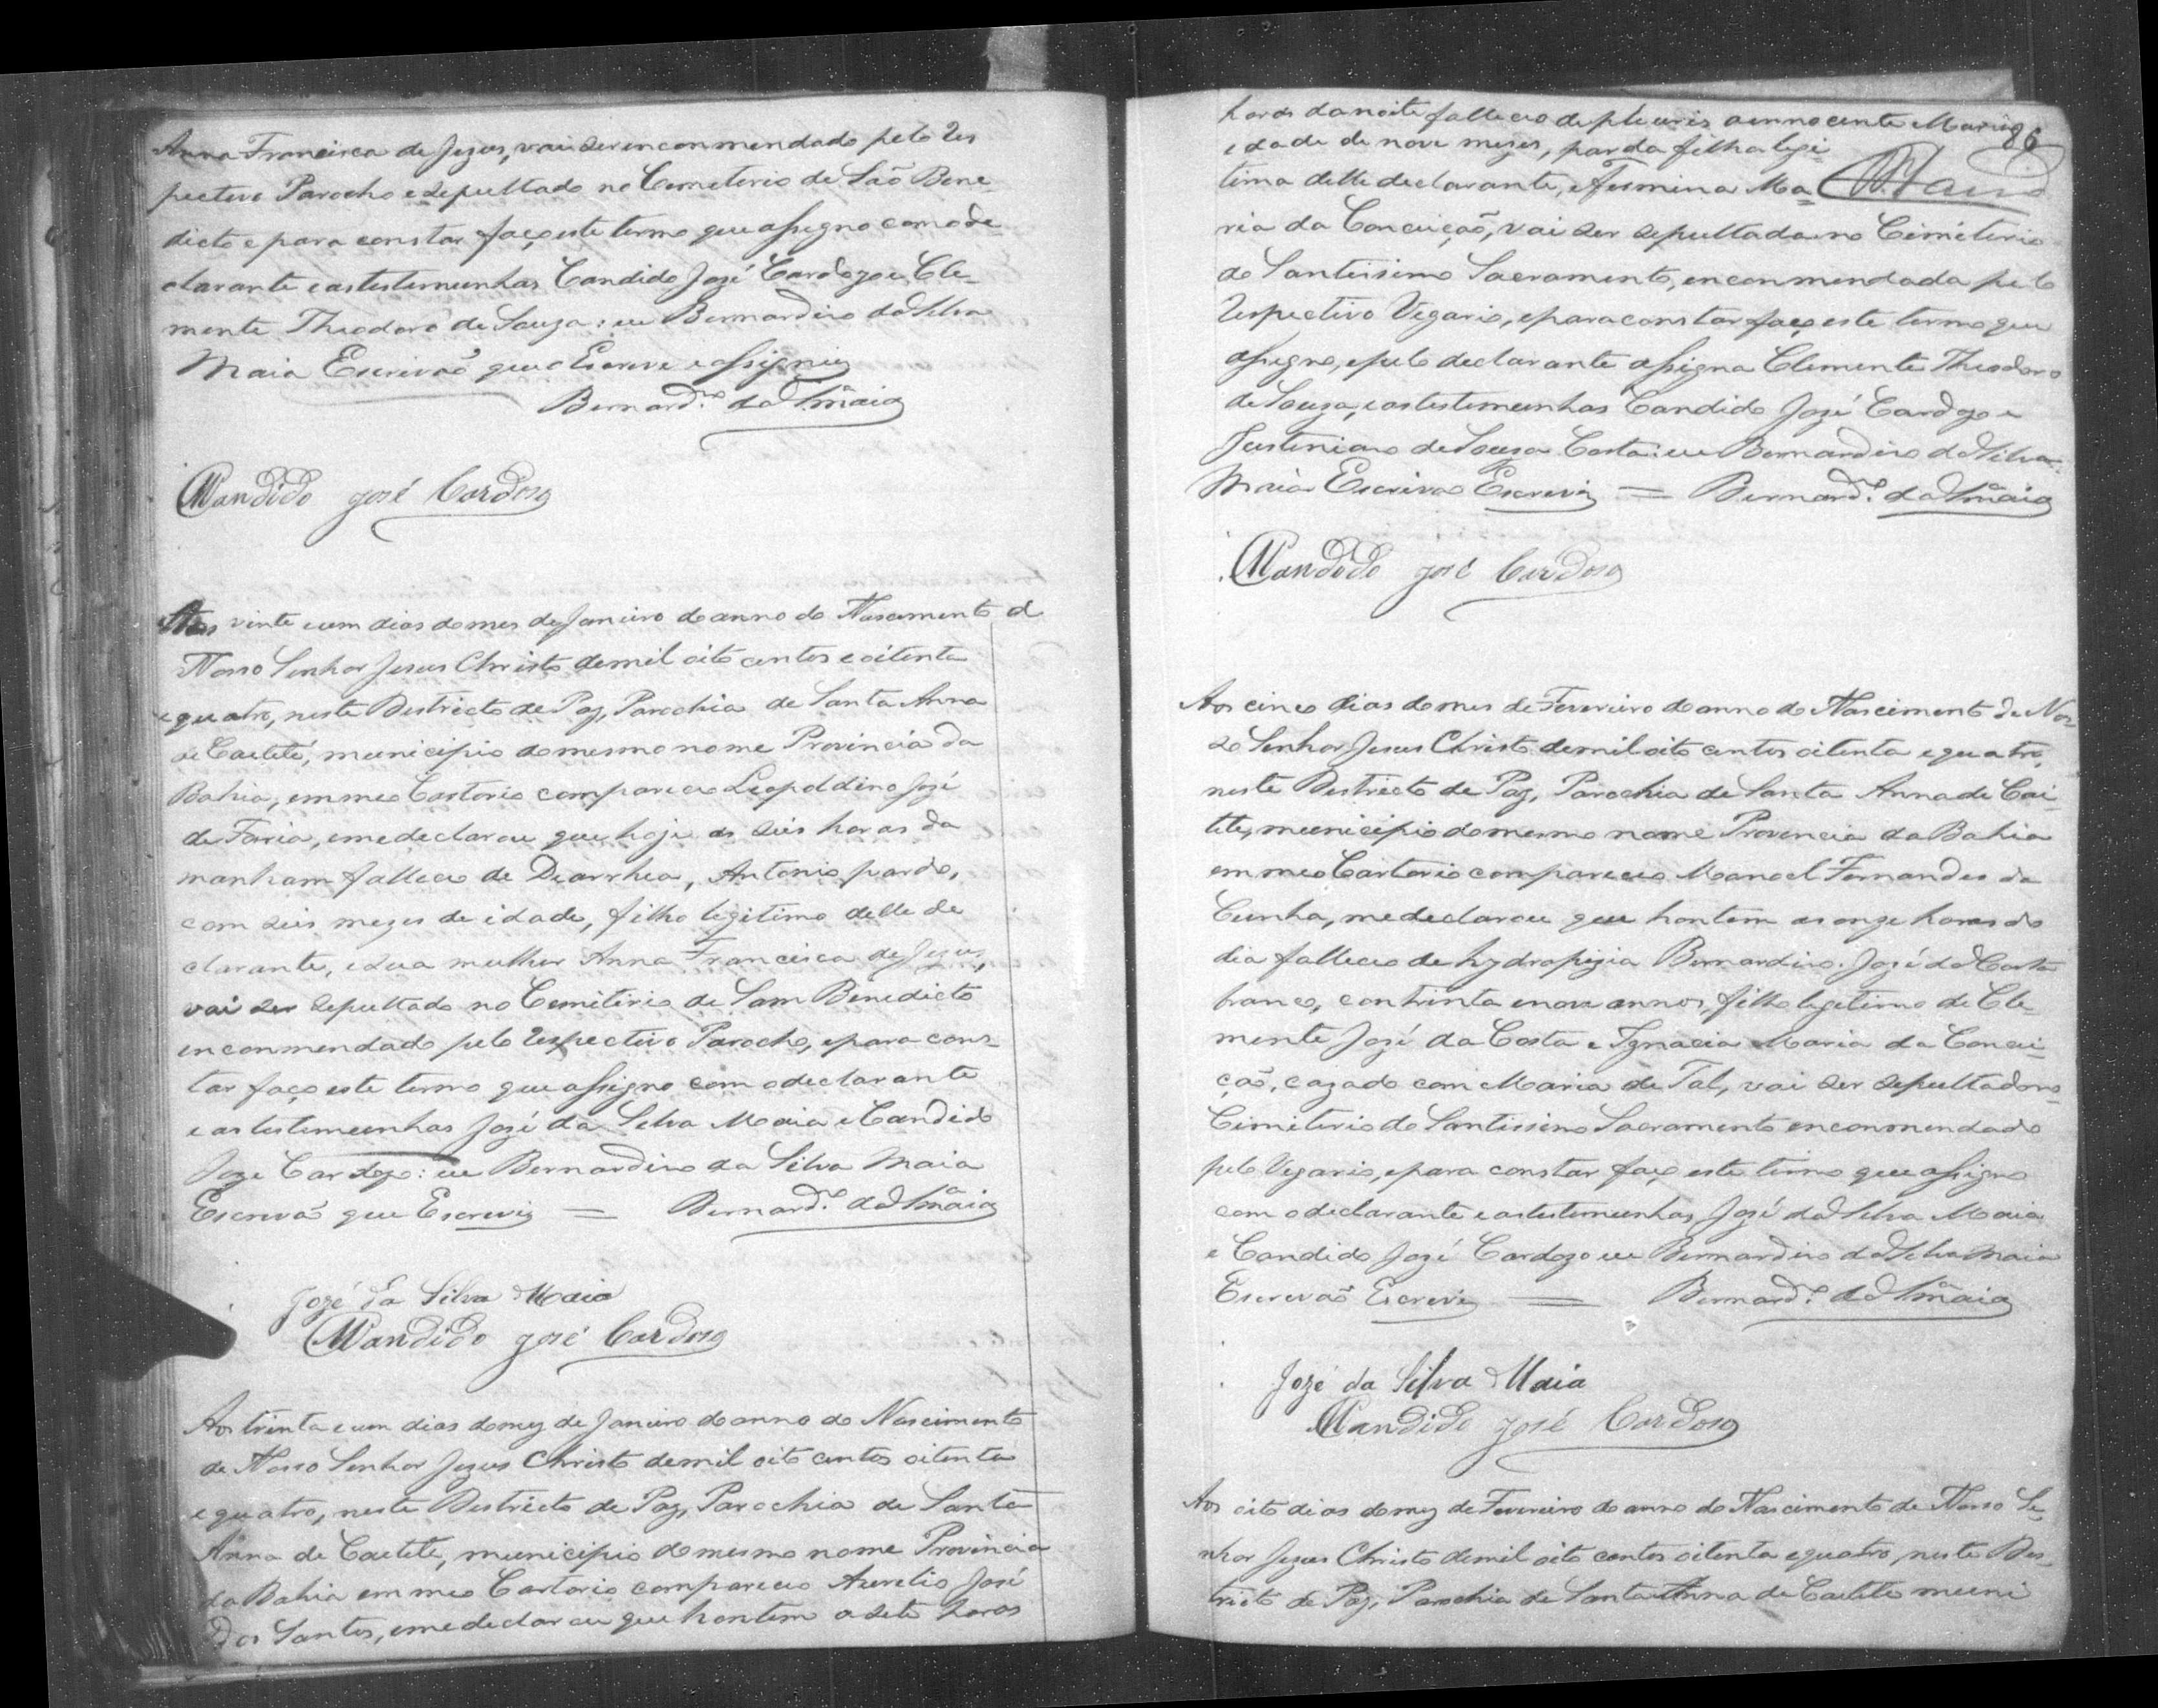 Anna Francisca de Jezus, vai ser enconmendado pelo Res
pectivo Parocho e sepultado no Cemeterio de São Bene
dicto e para constar faço este termo que assigno com o de
clarante e as testemunhas Candido José Cardozo e Cle-
mente Theodoro de Souza: eu Bernardino da Silva
Maia Escrivão que o Escreve e assignei
Bernard.º da S.ª Maia
Candido José Cardoso
Aos vinte e um dias do mes de Janeiro do anno do Nascimento d
Nosso Senhor Jesus Christo de mil oito centos e oitenta
e quatro, neste Destricto de Paz, Parochia de Santa Anna
de Caetité, municipio do mesmo nome Provincia da
Bahia, em meo Cartorio compareceo Leopoldino José
de Faria, e me declarou que hoje as seis horas da
manham falleceo de Diarrhea, Antonio pardo,
com seis mezes de idade, filho legitimo delle de
clarante, e sua mulher Anna Francisca de Jezus,
vai ser sepultado no Cemiterio de Sam Benedicto
enconmendado pelo respectivo Parocho, e para cons-
tar faço este termo que assigno com o declarante
e as testemunhas José da Silva Maia e Candido
Joze Cardozo: eu Bernardino da Silva Maia
Escrevão que Escrevi = Bernard.º da S.ª Maia
Jozé da Silva Maia
Candido José Cardoso
Aos trinta e um dias do mez de Janeiro do anno do Nascimento
de Nosso Senhor Jezus Christo de mil oito centos oitenta
e quatro, neste Destricto de Paz, Parochia de Santa
Anna de Caetité, municipio do mesmo nome Provincia
da Bahia em meo Cartorio compareceo Aurelio José
dos Santos, e me declarou que hontem a sete horas
86
horas da noite falleceo de pleuris a ennocente Maria
idade de nove mezes, parda filha legi-
tima delle declarante, e Fermina Ma=
ria da Conceição, vai ser sepultada no Cimiterio
do Santissimo Sacramento, enconmendada pelo
Respectivo Vegario, e para constar faço este termo que
assigno, e pelo declarante assigna Clemente Theodoro
de Souza, e as testemunhas Candido José Cardozo e
Justiniano de Souza Costa: eu Bernardino da Silva
Maia Escrivão Escrevi = Bernard.º da S.ª Maia
Candido José Cardoso
Aos cinco dias do mes de Fevereiro do anno do Nascimento de Nos-
so Senhor Jesus Christo de mil oito centos oitenta e quatro,
neste Destricto de Paz, Parochia de Santa Anna de Cai-
tete, municipio do mesmo nome Provencia da Bahia
em meo Cartorio compareceo Manoel Fernandes da
Cunha, me declarou que hontem as onze horas do
dia falleceo de hydropizia Bernardino José da Costa
branco, con trinta e nove annos, filho legetimo de Cle-
mente José da Costa e Ignacia Maria da Concei-
ção, cazado com Maria de Tal, vai ser sepultado no
Cimiterio do Santissimo Sacramento enconmendado
pelo Vegario, e para constar faço este termo que assigno
com o declarante e as testemunhas José da Silva Maia
e Candido José Cardozo eu Bernardino da Silva Maia
Escrevão Escrevi = Bernard.º da S.ª Maia
Jozé da Silva Maia
Candido José Cardoso
Aos oito dias do mez de Fevereiro do anno do Nascimento de Nosso Se-
nhor Jezus Christo de mil oito centos oitenta e quatro, neste Des-
tricto de Paz, Parochia de Santa Anna de Caetite muni